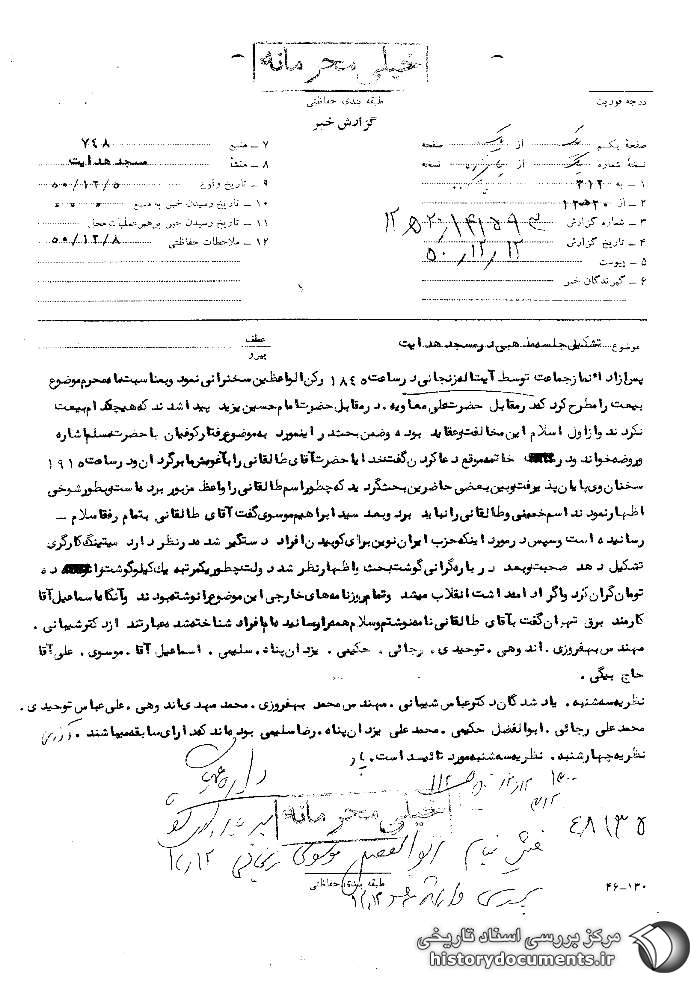 خیلی محرمانه
طبقه بندی حفاظتی
درجه فوریت
گزارش خبر
صفحهٔ یکم یک از یک صفحه
نسخهٔ شماره یک از نسخه
۱ – به ۳۱۲
۲ – از ۲۰ه۱۲
۳ – شماره گزارش
۴ – تاریخ گزارش ۵۰/۱۲/۱۲
۵ – پیوست
۶ – گیرندگان خبر
۷ – منبع ۷۴۸
۸ – منشأ مسجد هدایت
۹ – تاریخ وقوع ۵۰/۱۲/۵
۱۰ – تاریخ رسیدن خبر به منبع
۱۱ – تاریخ رسیدن خبر برهبر عملیات محل
۱۲ – ملاحظات حفاظتی ۵۰/۱۲/۸
موضوع تشکیل جلسه مذهبی در مسجد هدایت
عطف
پیرو
پس از اداء نماز جماعت توسط آیت اله زنجانی در ساعت ۱۸۴۵ رکن الواعظین سخنرانی نمود و بمناسبت ماه محرم موضوع
بیعت را مطرح کرد که در مقابل حضرت علی معاویه . در مقابل حضرت امام حسین یزید پیدا شدند که هیچکدام بیعت
نکردند و از اول اسلام این مخالفت و عقاید بوده و ضمن بحث در اینمورد به موضوع رفتار کوفیان با حضرت مسلم اشاره
و روضه خواند و در خاتمه موقع دعا کردن گفت خدایا حضرت آقای طالقانی را بآغوش ما برگردان و در ساعت ۱۹۱۵
سخنان وی پایان پذیرفت و بین بعضی حاضرین بحث گردید که چطور اسم طالقانی را واعظ مزبور برده است و بطور شوخی
اظهار نمودند اسم خمینی و طالقانی را نباید برد و بعد سید ابراهیم موسوی گفت آقای طالقانی بتمام رفقا سلام –
رسانیده است و سپس در مورد اینکه حزب ایران نوین برای کوبیدن افراد دستگیر شده در نظر دارد میتینگ کارگری
تشکیل دهد صحبت و بعد درباره گرانی گوشت بحث و اظهار نظر شد دولت چطور یکمرتبه یک کیلو گوشت را ده
تومان گران کرد و اگر ادامه داشت انقلاب میشد و تمام روزنامه های خارجی این موضوع را نوشته بودند و آنگاه اسماعیل آقا
کارمند برق تهران گفت بآقای طالقانی نامه نوشتم و سلام همه را رسانیده ام افراد شناخته شده عبارتند از دکتر شیبانی .
مهندس بهفروزی . اندوهی . توحیدی . رجائی . حکیمی . یزدان پناه . سلیمی . اسماعیل آقا . موسوی . علی آقا
حاج بیگی .
نظریه سه شنبه . یاد شدگان دکتر عباس شیبانی . مهندس محمد بهفروزی . محمد مهدی اندوهی . علی عباس توحیدی .
محمد علی رجائی . ابوالفضل حکیمی . محمد علی یزدان پناه . رضا سلیمی بوده اند که دارای سابقه میباشند .
نظریه چهارشنبه . نظریه سه شنبه مورد تائید است .
خیلی محرمانه
طبقه بندی حفاظتی
۴۸۱۳۵
۴۶-۱۳۰
مرکز بررسی اسناد تاریخی
historydocuments.ir